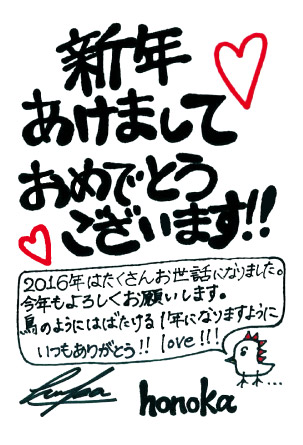 新年
あけまして
おめでとう
ございます!!
2016年はたくさんお世話になりました。
今年もよろしくお願いします。
鳥のようにはばたける1年になりますように
いつもありがとう!! love!!!
honoka